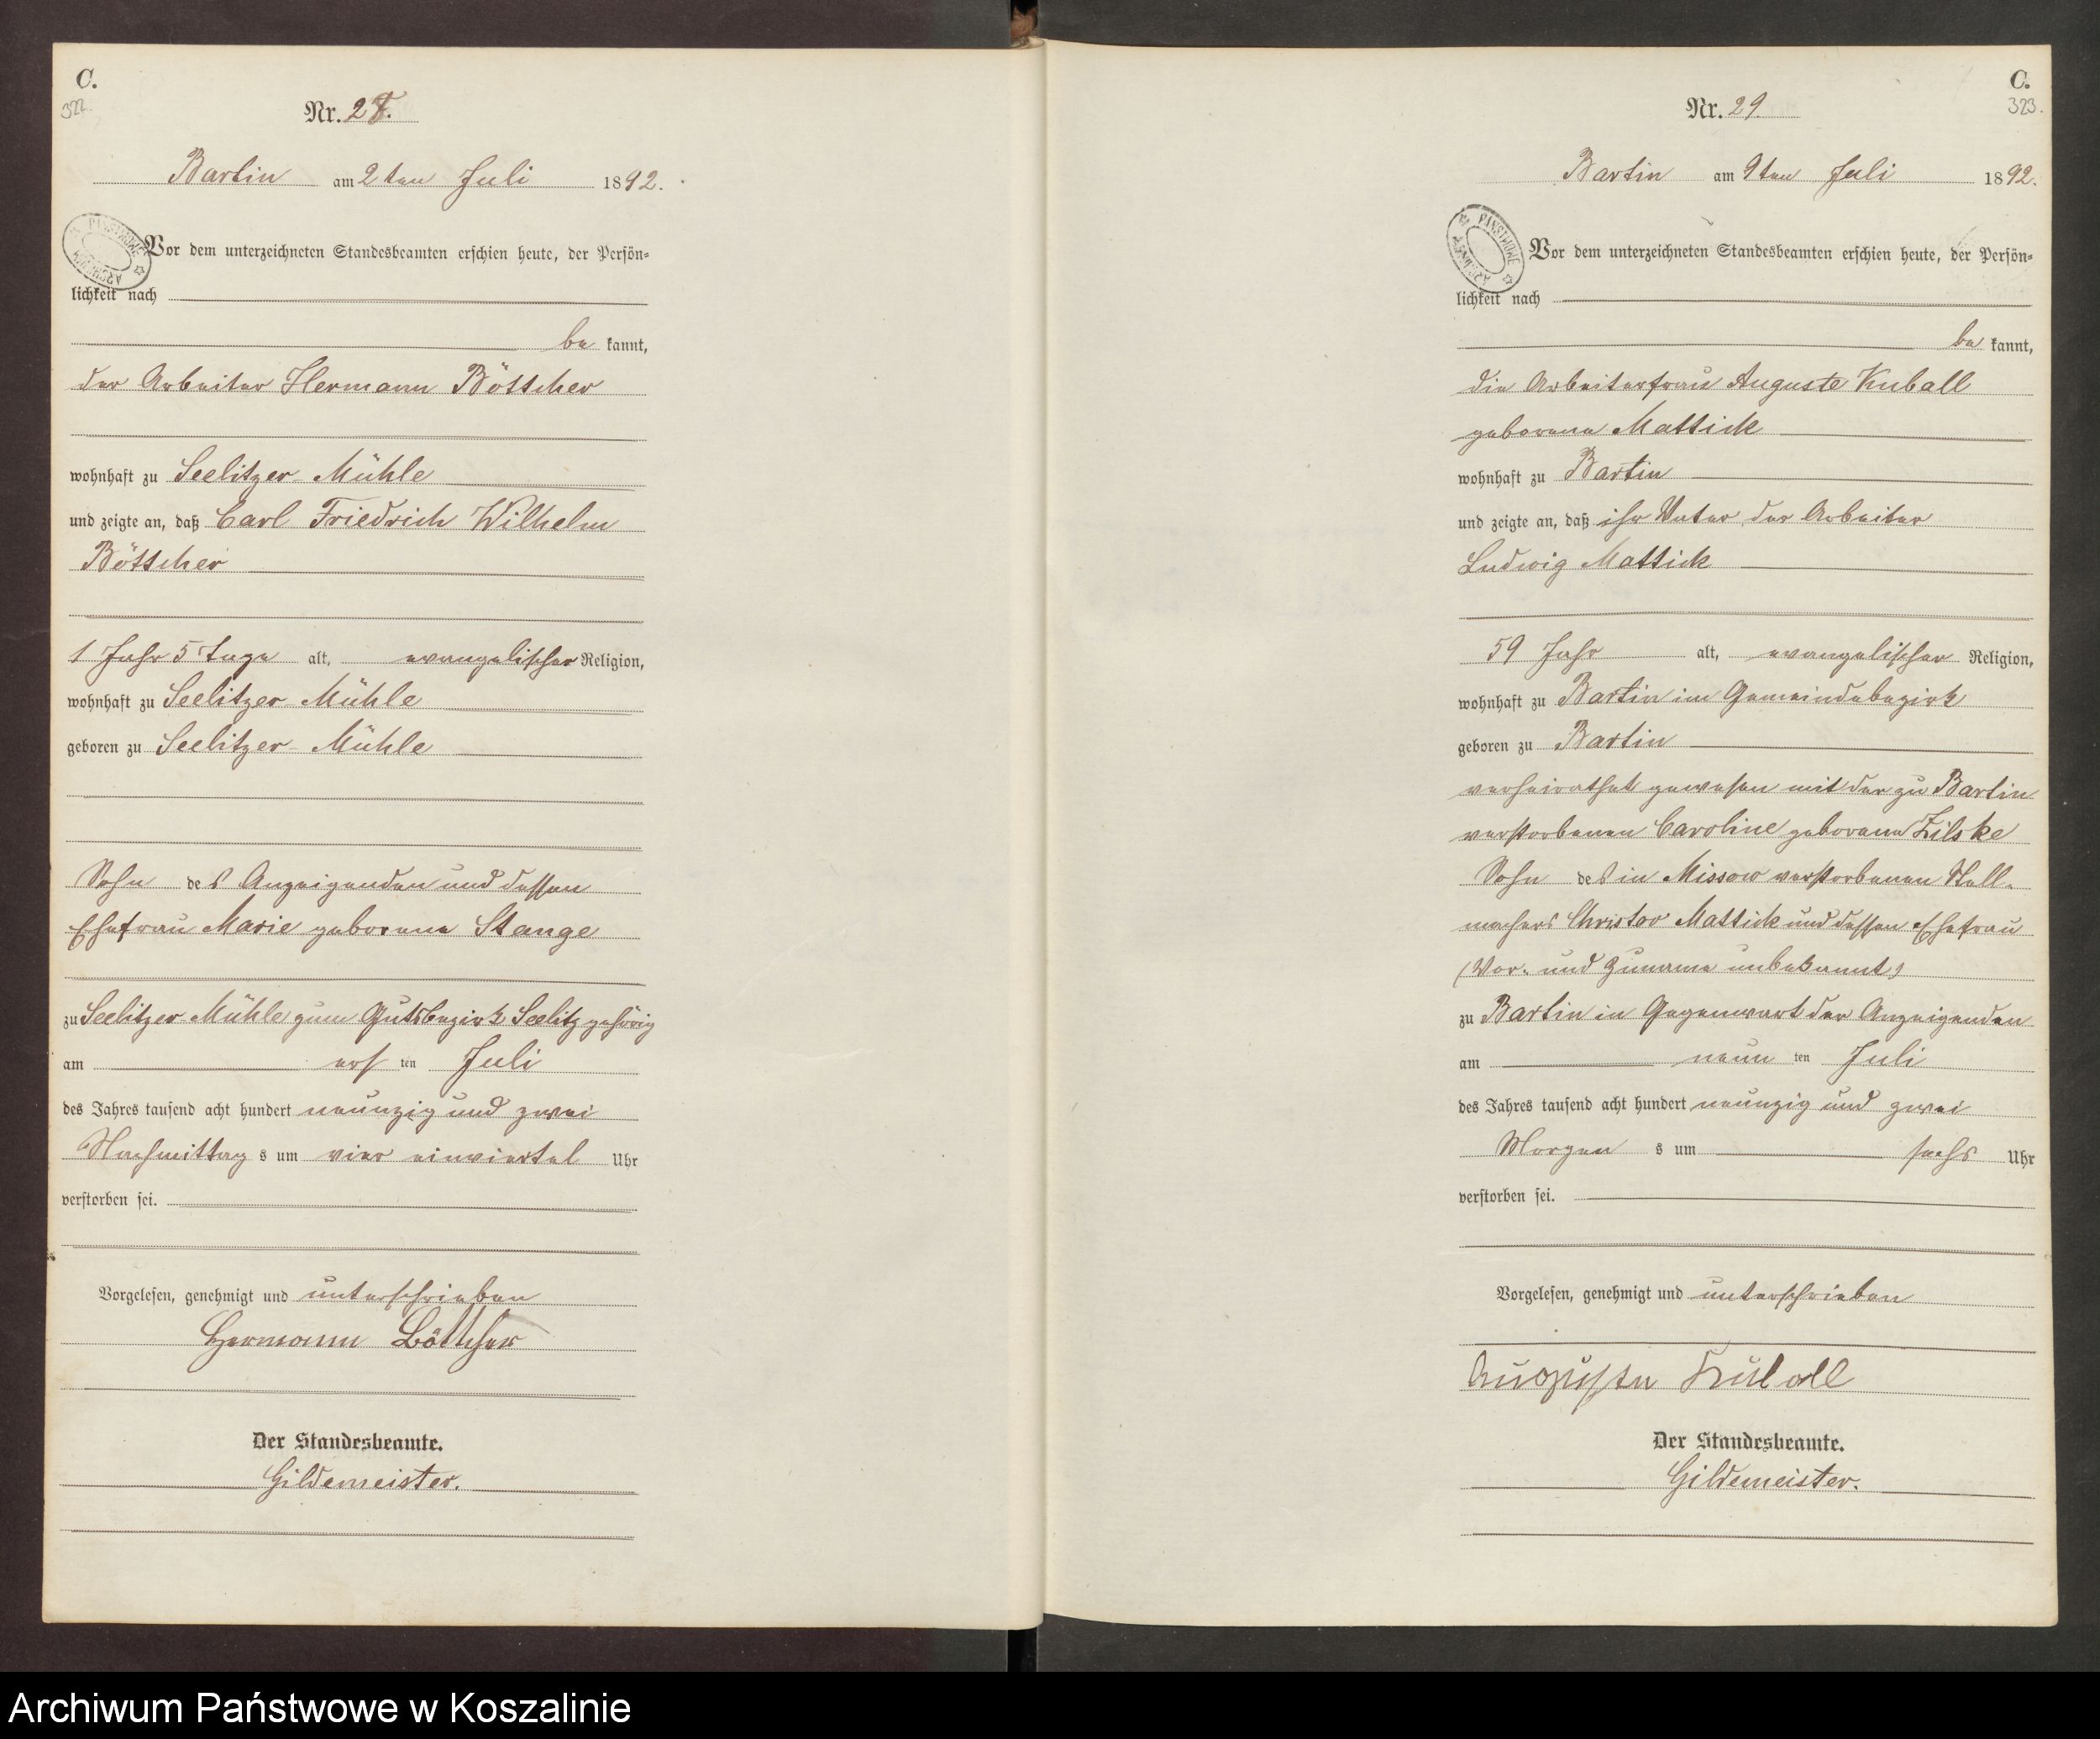 C.
322.
Nr. 28.
Bartin am 2ten Juli 1892.
PAŃSTWOWE ARCHIWUM
Vor dem unterzeichneten Standesbeamten erschien heute, der Persön-
lichkeit nach
be kannt,
der Arbeiter Hermann Böttcher
wohnhaft zu Seelitzer Mühle
und zeigte an, daß Carl Friedrich Wilhelm
Böttcher
1 Jahr 5 Tage alt, evangelischer Religion,
wohnhaft zu Seelitzer Mühle
geboren zu Seelitzer Mühle
Sohn des Anzeigenden und dessen
Ehefrau Marie geborene Stange
zu Seelitzer Mühle zum Gutsbezirk Seelitz gehörig
am ers ten Juli
des Jahres tausend acht hundert neunzig und zwei
Nachmittag s um vier einviertel Uhr
verstorben sei.
Vorgelesen, genehmigt und unterschrieben
Hermann Böttcher
Der Standesbeamte.
Gildemeister.
C.
323.
Nr. 29.
Bartin am 9ten Juli 1892.
PAŃSTWOWE ARCHIWUM
Vor dem unterzeichneten Standesbeamten erschien heute, der Persön-
lichkeit nach
be kannt,
die Arbeiterfrau Auguste Kuball
geborene Mattick
wohnhaft zu Bartin
und zeigte an, daß ihr Vater, der Arbeiter
Ludwig Mattick
59 Jahr alt, evangelischer Religion,
wohnhaft zu Bartin im Gemeindebezirk
geboren zu Bartin
verheirathet gewesen mit der zu Bartin
verstorbenen Caroline geborene Zilske
Sohn des in Missow verstorbenen Stell-
machers Christov Mattick und dessen Ehefrau
(Vor- und Zuname unbekannt)
zu Bartin in Gegenwart der Anzeigenden
am neun ten Juli
des Jahres tausend acht hundert neunzig und zwei
Morgen s um sechs Uhr
verstorben sei.
Vorgelesen, genehmigt und unterschrieben
Auguste Kuball
Der Standesbeamte.
Gildemeister.
Archiwum Państwowe w Koszalinie